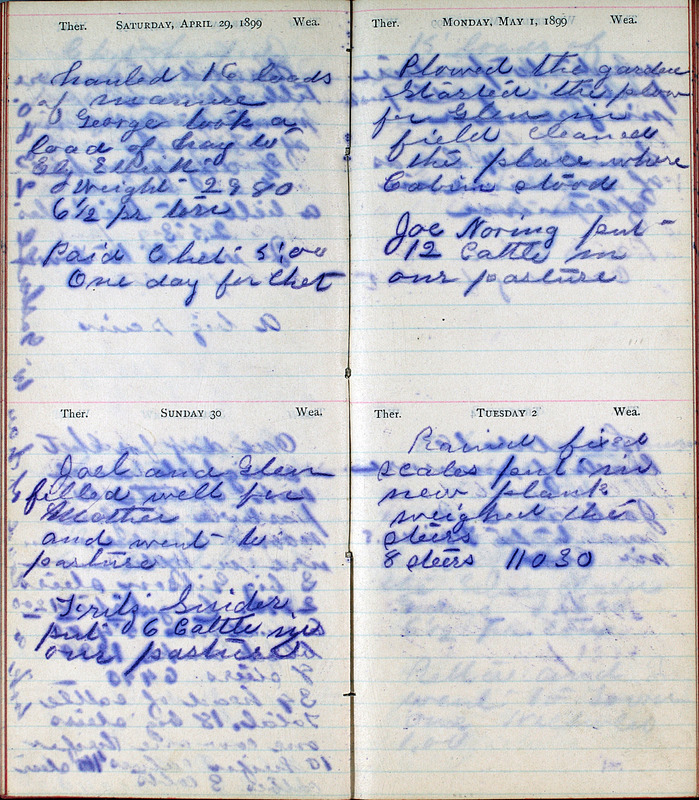 Ther. SATURDAY, APRIL 29, 1899 Wea.
hauled 16 loads
of manure
George took a
load of hay to
Ely
Weight 2980
6 1/2 pr ton
Paid Chet 5.00
One day for Chet
Ther. SUNDAY 30 Wea.
Joel and Glen
filled well for
Mother
and went to
pasture
Fritz Snider
put 6 Cattle in
our pasture
Ther. MONDAY, MAY 1, 1899 Wea.
Plowed the garden
Started the plow
for Glen in
field cleaned
the place where
Cabin stood
Joe Noring put
12 Cattle in
our pasture
Ther. TUESDAY 2 Wea.
Rained fixed
scales put in
new plank
weighed the
steers
8 steers 11030